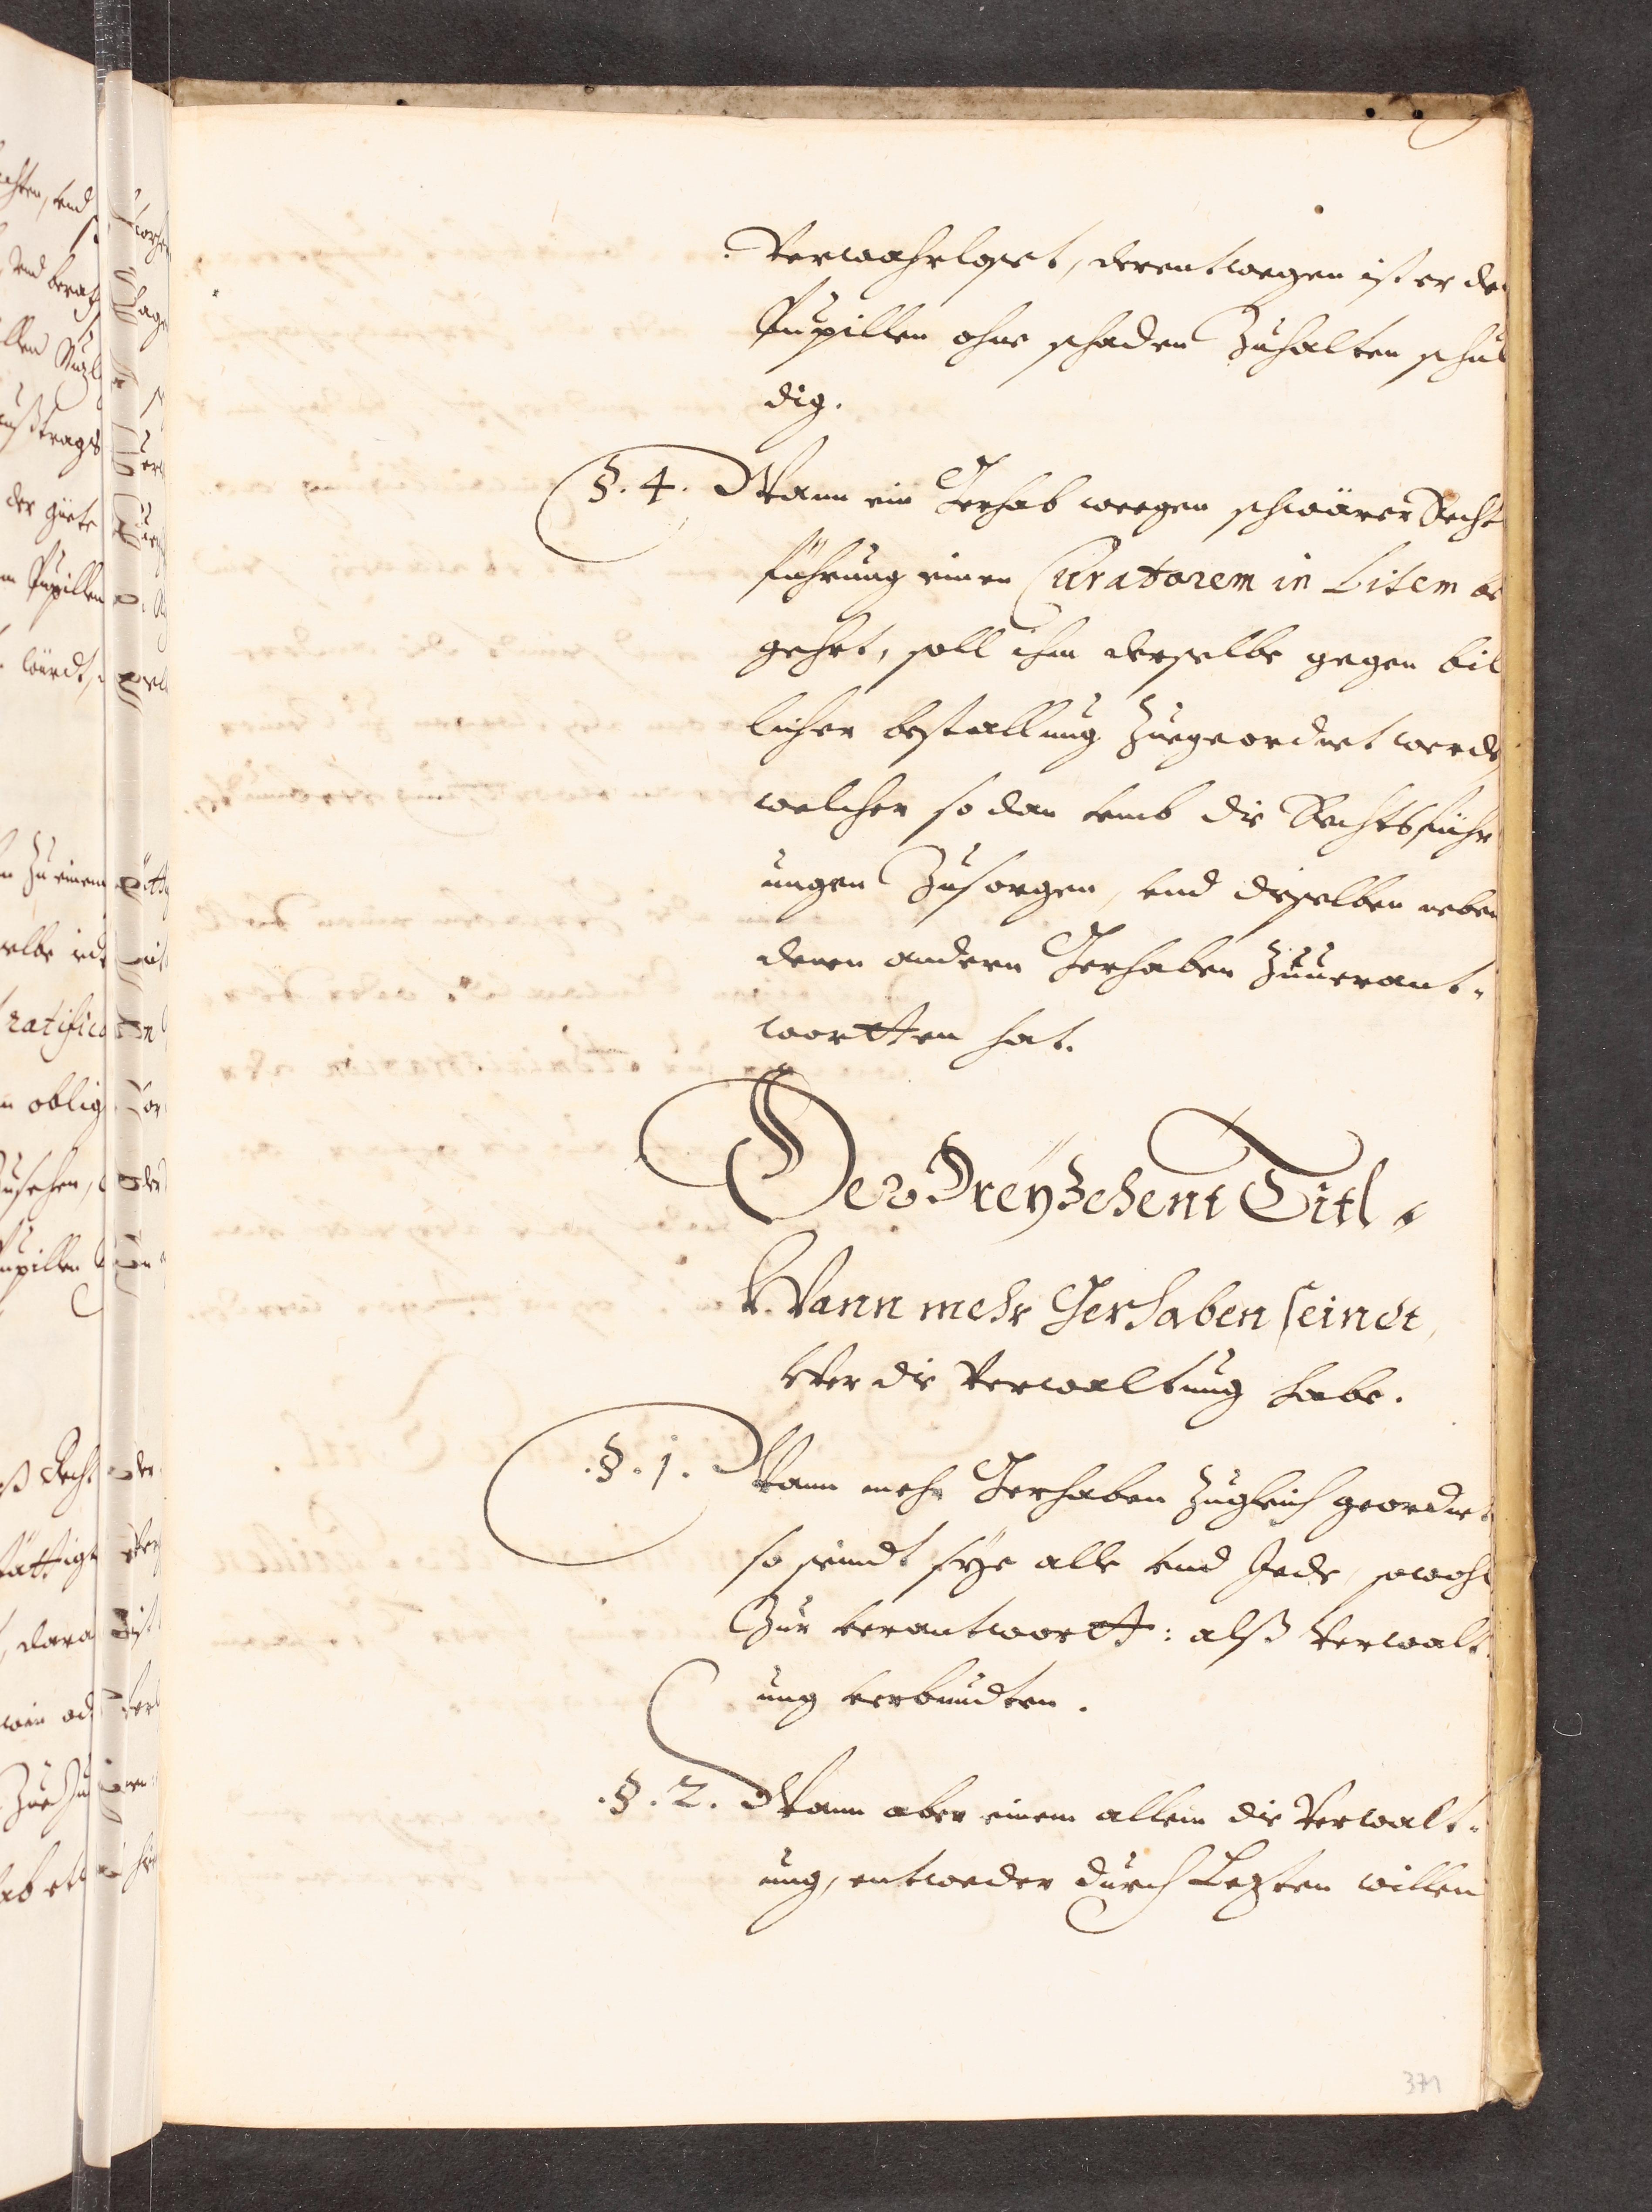 Verwahrlost, derentwegen ist er de
Pupillen ohne schaden Zuhalten schul
dig.
§. 4. Wann ein Gerhab weegen schwärer Recht
führung einen Curatorem in Litem be
gehrt, soll ihm derselbe gegen bil
licher bestallung Zuegeordnet werde
welcher so dan vmb die Rechtsführ
ungen Zusorgen, vnd dieselben neben
denen andern Gerhaben Zuuerant-
wortten hat.
Der Dreÿzehent Titl.
Wann mehr Gerhaben seindt,
Wer die Verwaltung habe.
§. 1. Wann mehr Gerhaben Zugleich geordnet
so seindt sÿe alle vnd Jede, sowohl
Zur verantwortt: alß Verwalt
ung verbundten.
§. 2. Wann aber einem allein die Verwalt-
ung, entweder durch Lezten willen
371